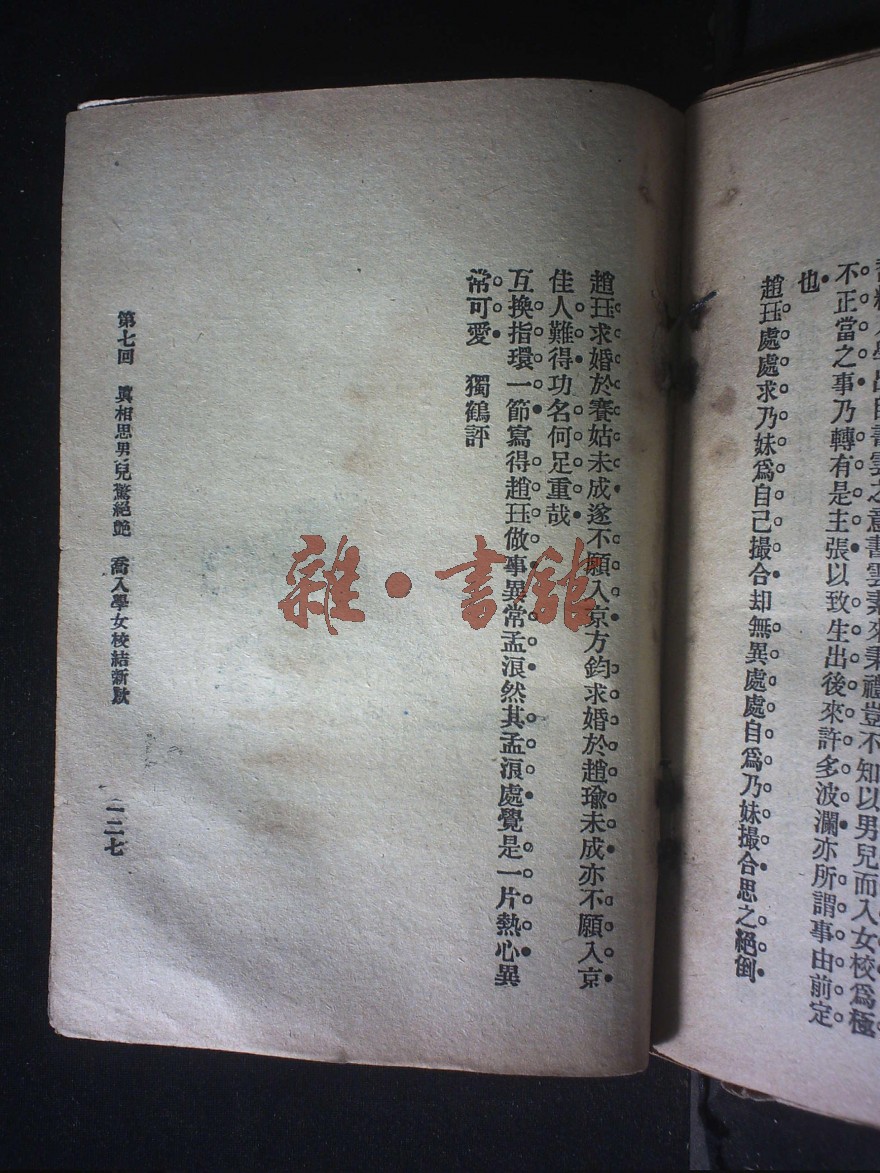 不正當之事乃轉有是主張以致生出後來許多波瀾亦所謂事由前定
也
趙珏處處求乃妹爲自己撮合却無異處處自爲乃妹撮合思之絕倒
趙珏求婚於賽姑未成遂不願入京方鈞求婚於趙瑜未成亦不願入京
佳人難得功名何足重哉
互換指環一節寫得趙珏做事異常孟浪然其孟浪處覺是一片熱心異
常可愛　獨鶴評
第七回　眞相思男兒驚絕艷　喬入學女校結新歡
一二七
雜·書館